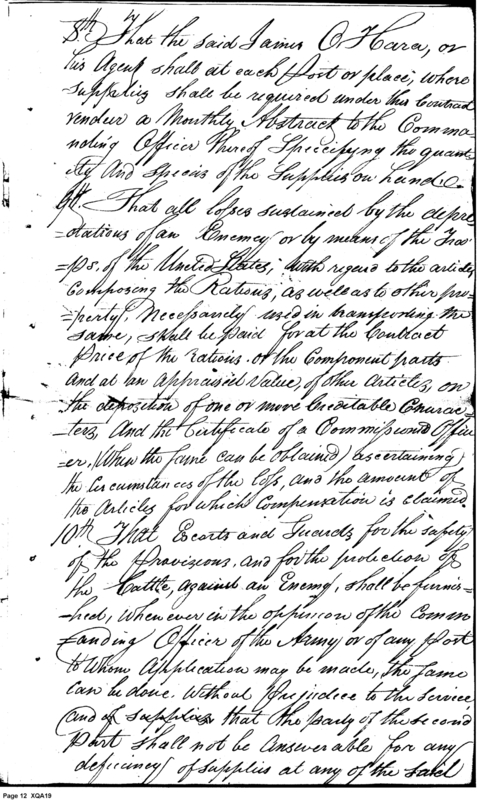 8th. That the said James O Hara, or
his Agent shall at each Post or place, where
Supplies shall be required under this Contract
render a Monthly Abstract to the Comma
nding Officer thereof Specifying the quant
ity And Species of the Supplies on hand.
9th. That all losses sustained by the depre
=dations of an Enemy or by means of the Troo
=ps. of the United States, with regard to the articles
Composing the Rations, as well as to other pro=
=perty, Necessarily used in transporting the
same, shall be paid for at the Contract
Price of the rations. or the Component parts
And at an appraised value, of other Articles, on
the deposition of one or more Creditable Charac=
=ters, And the Certificate of a Commission'd Offic
er, (When the same can be obtained) ascertaining
the Circumstances of the loss, and the amount of
the Articles for which Compensation is claimed
10th That Escorts and Guards for the safety
of the Provisions, and for the protection of
the Cattle, against an Enemy, shall be furnis=
=hed, whenever in the oppinion of the Comm
=anding Officer of the Army or of any Post
to whom Application may be made, the same
can be done. Without Prejudice to the Service
and of supplies that the party of the second
Part shall not be answerable for any
deficiency of supplies at any of the said
Page 12 XQA19